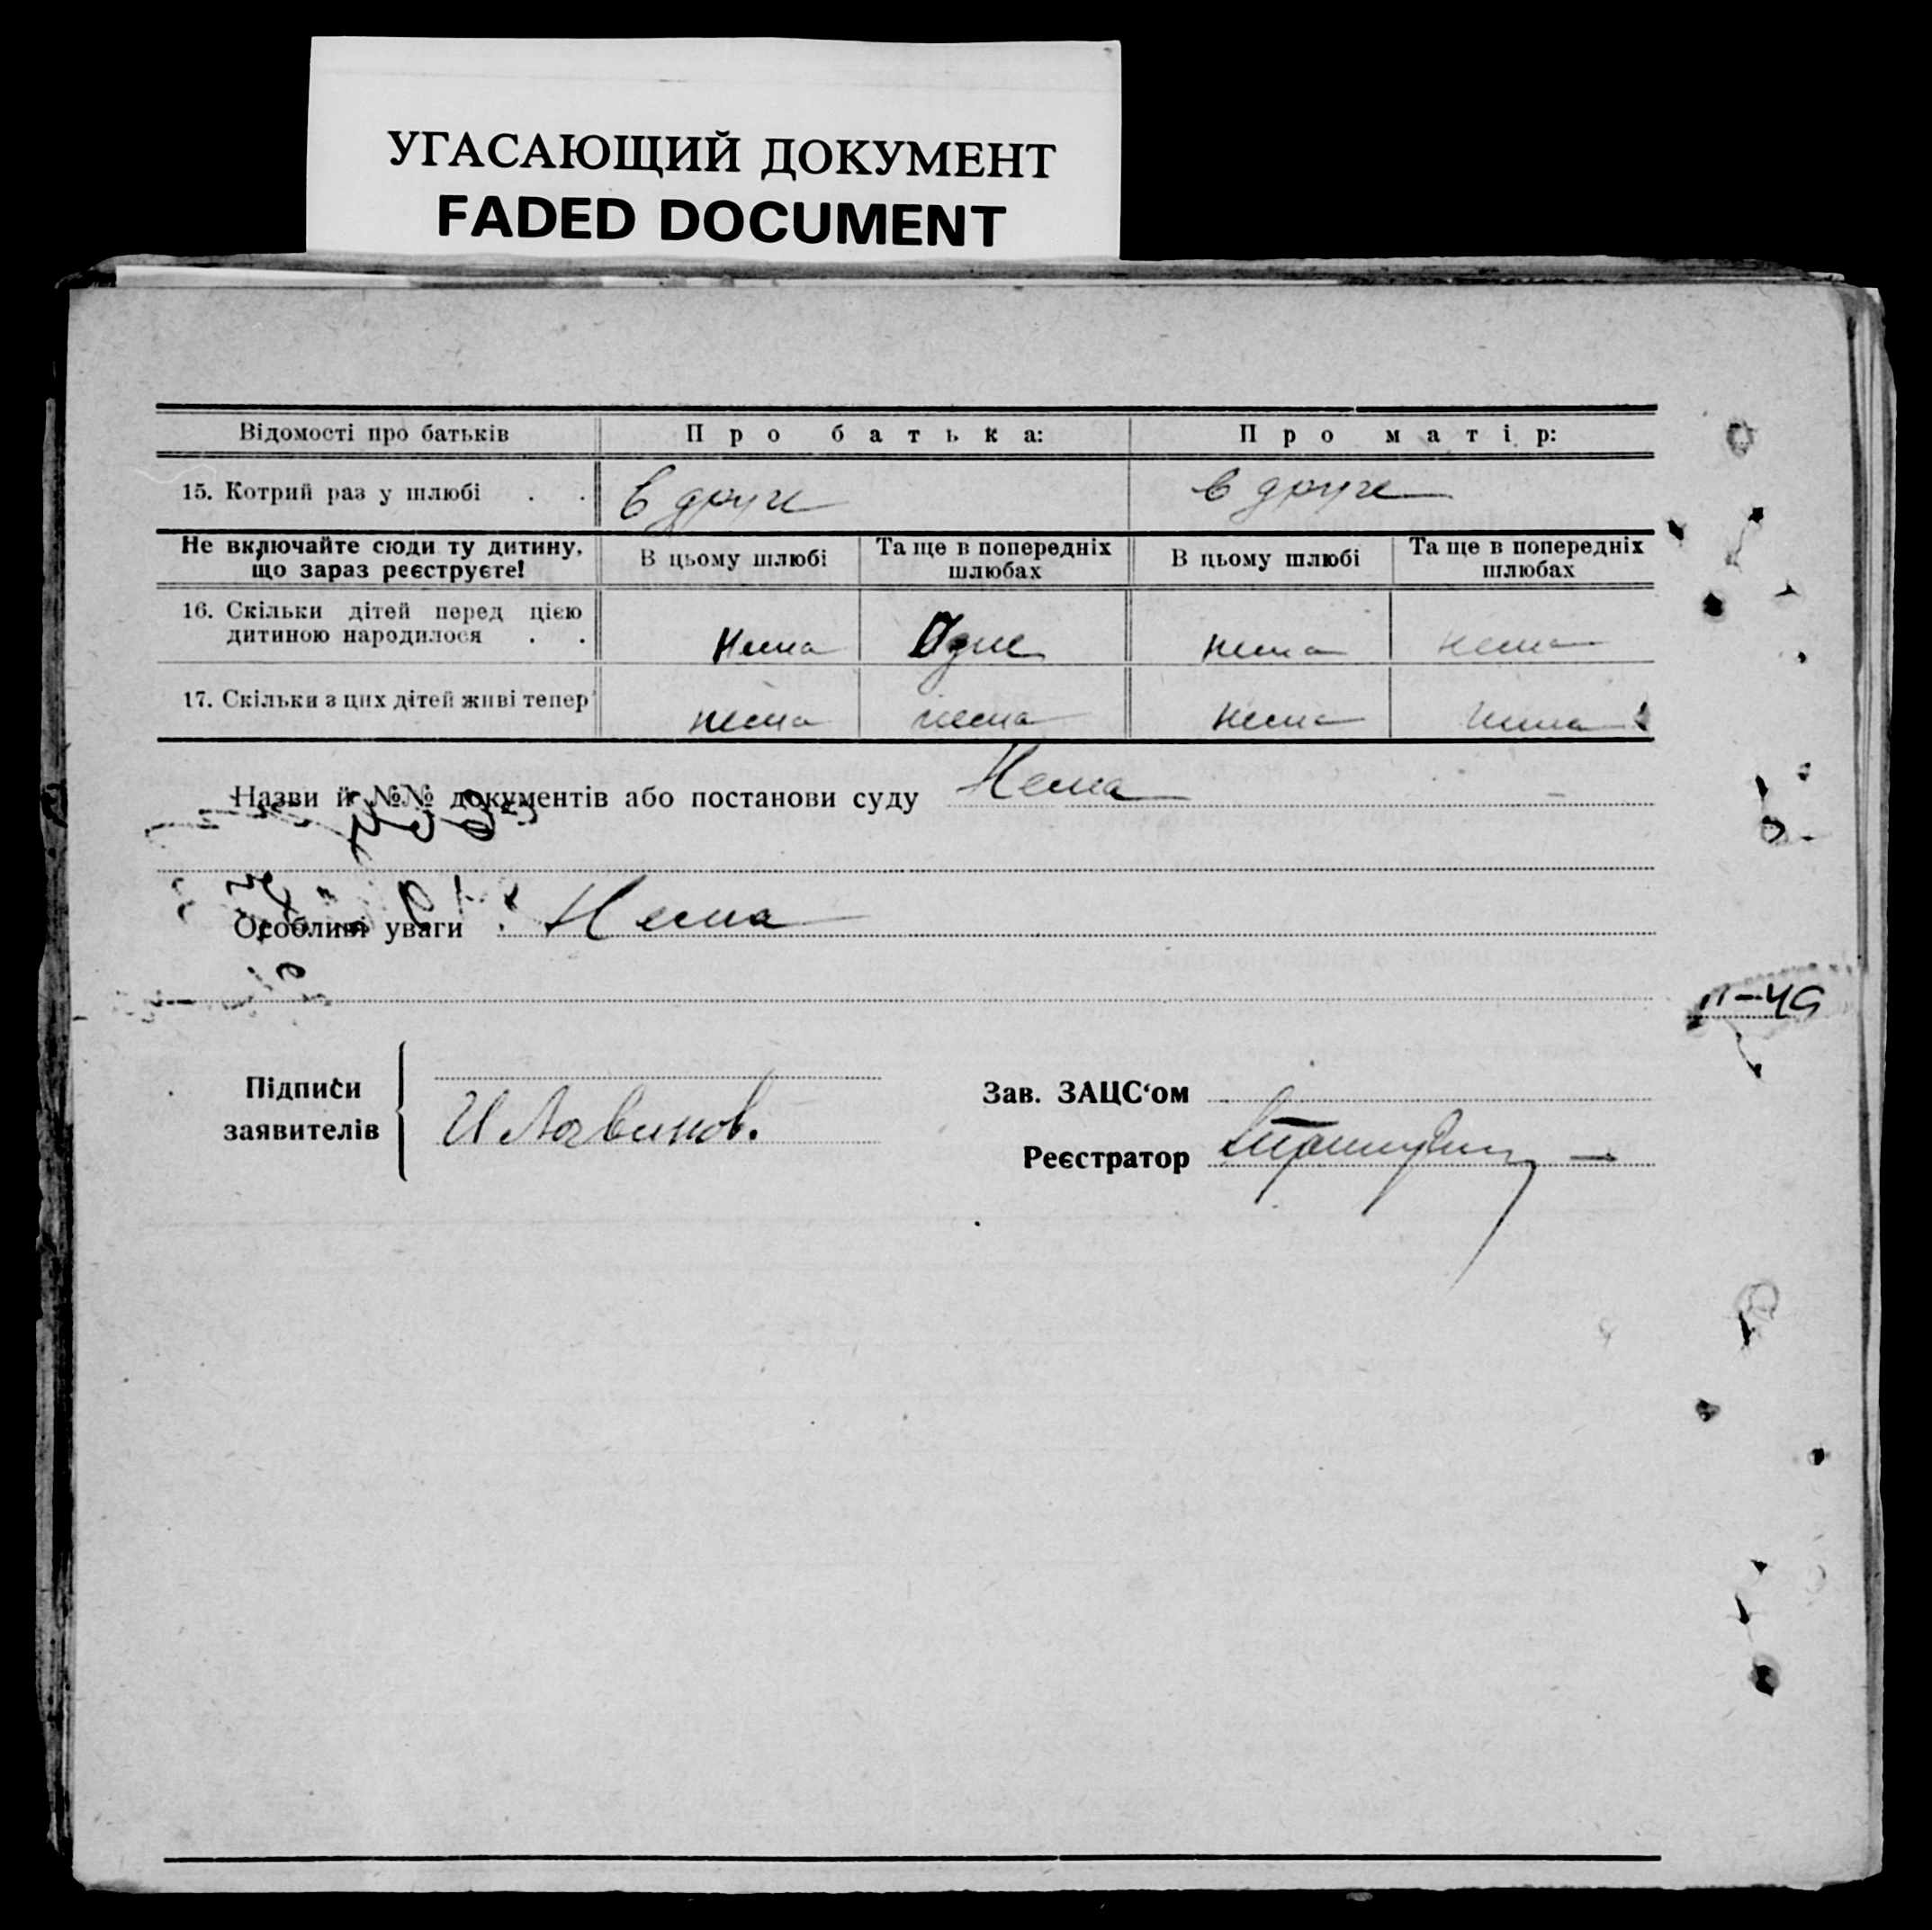 УГАСАЮЩИЙ ДОКУМЕНТ
FADED DOCUMENT
Відомості про батьків Про батька: Про матір:
15. Котрий раз у шлюбі . . в друге в друге
Не включайте сюди ту дитину, що зараз реєструєте! В цьому шлюбі Та ще в попередніх шлюбах В цьому шлюбі Та ще в попередніх шлюбах
16. Скільки дітей перед цією
дитиною народилося . . Нема Одне нема нема
17. Скільки з цих дітей живі тепер нема нема нема нема
Назви й №№ документів або постанови суду Нема
Особливі уваги Нема
Підписи
заявителів
Зав. ЗАЦС‘ом
Реєстратор